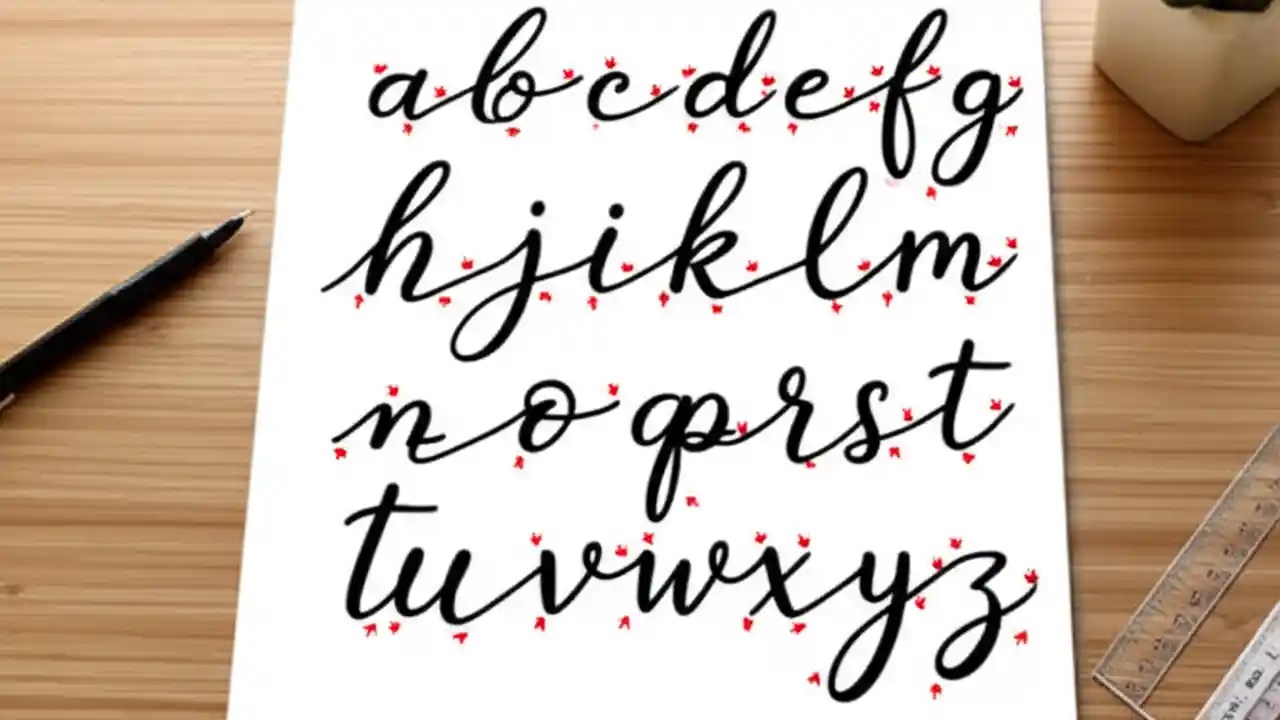 abcdefg
hjiklm
noqprst
tuvwxyz